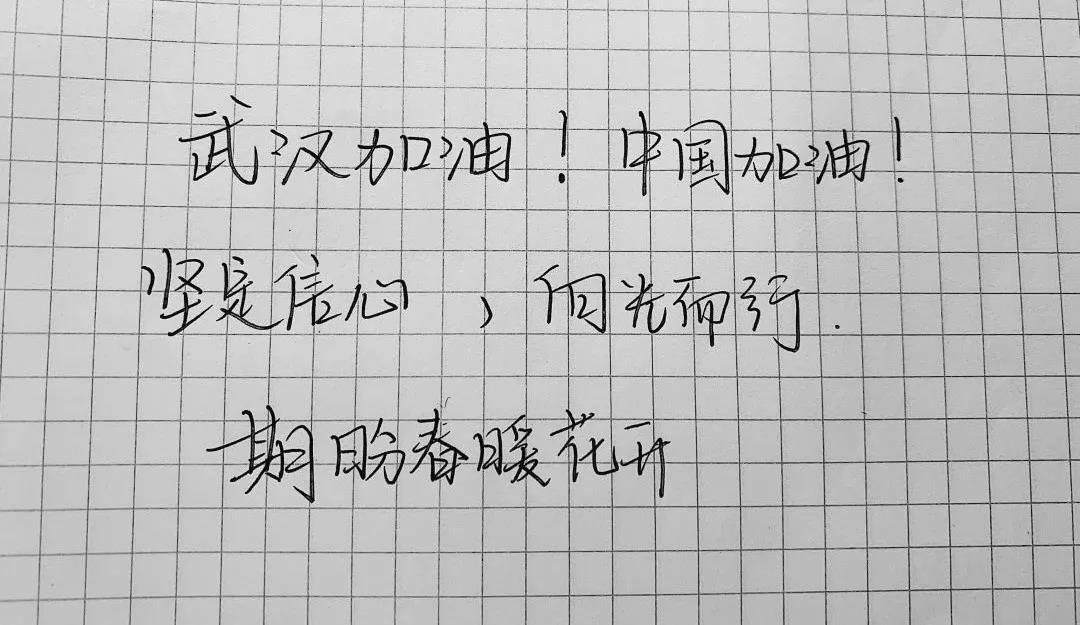 武汉加油！中国加油！
坚定信心，向光而行.
期盼春暖花开